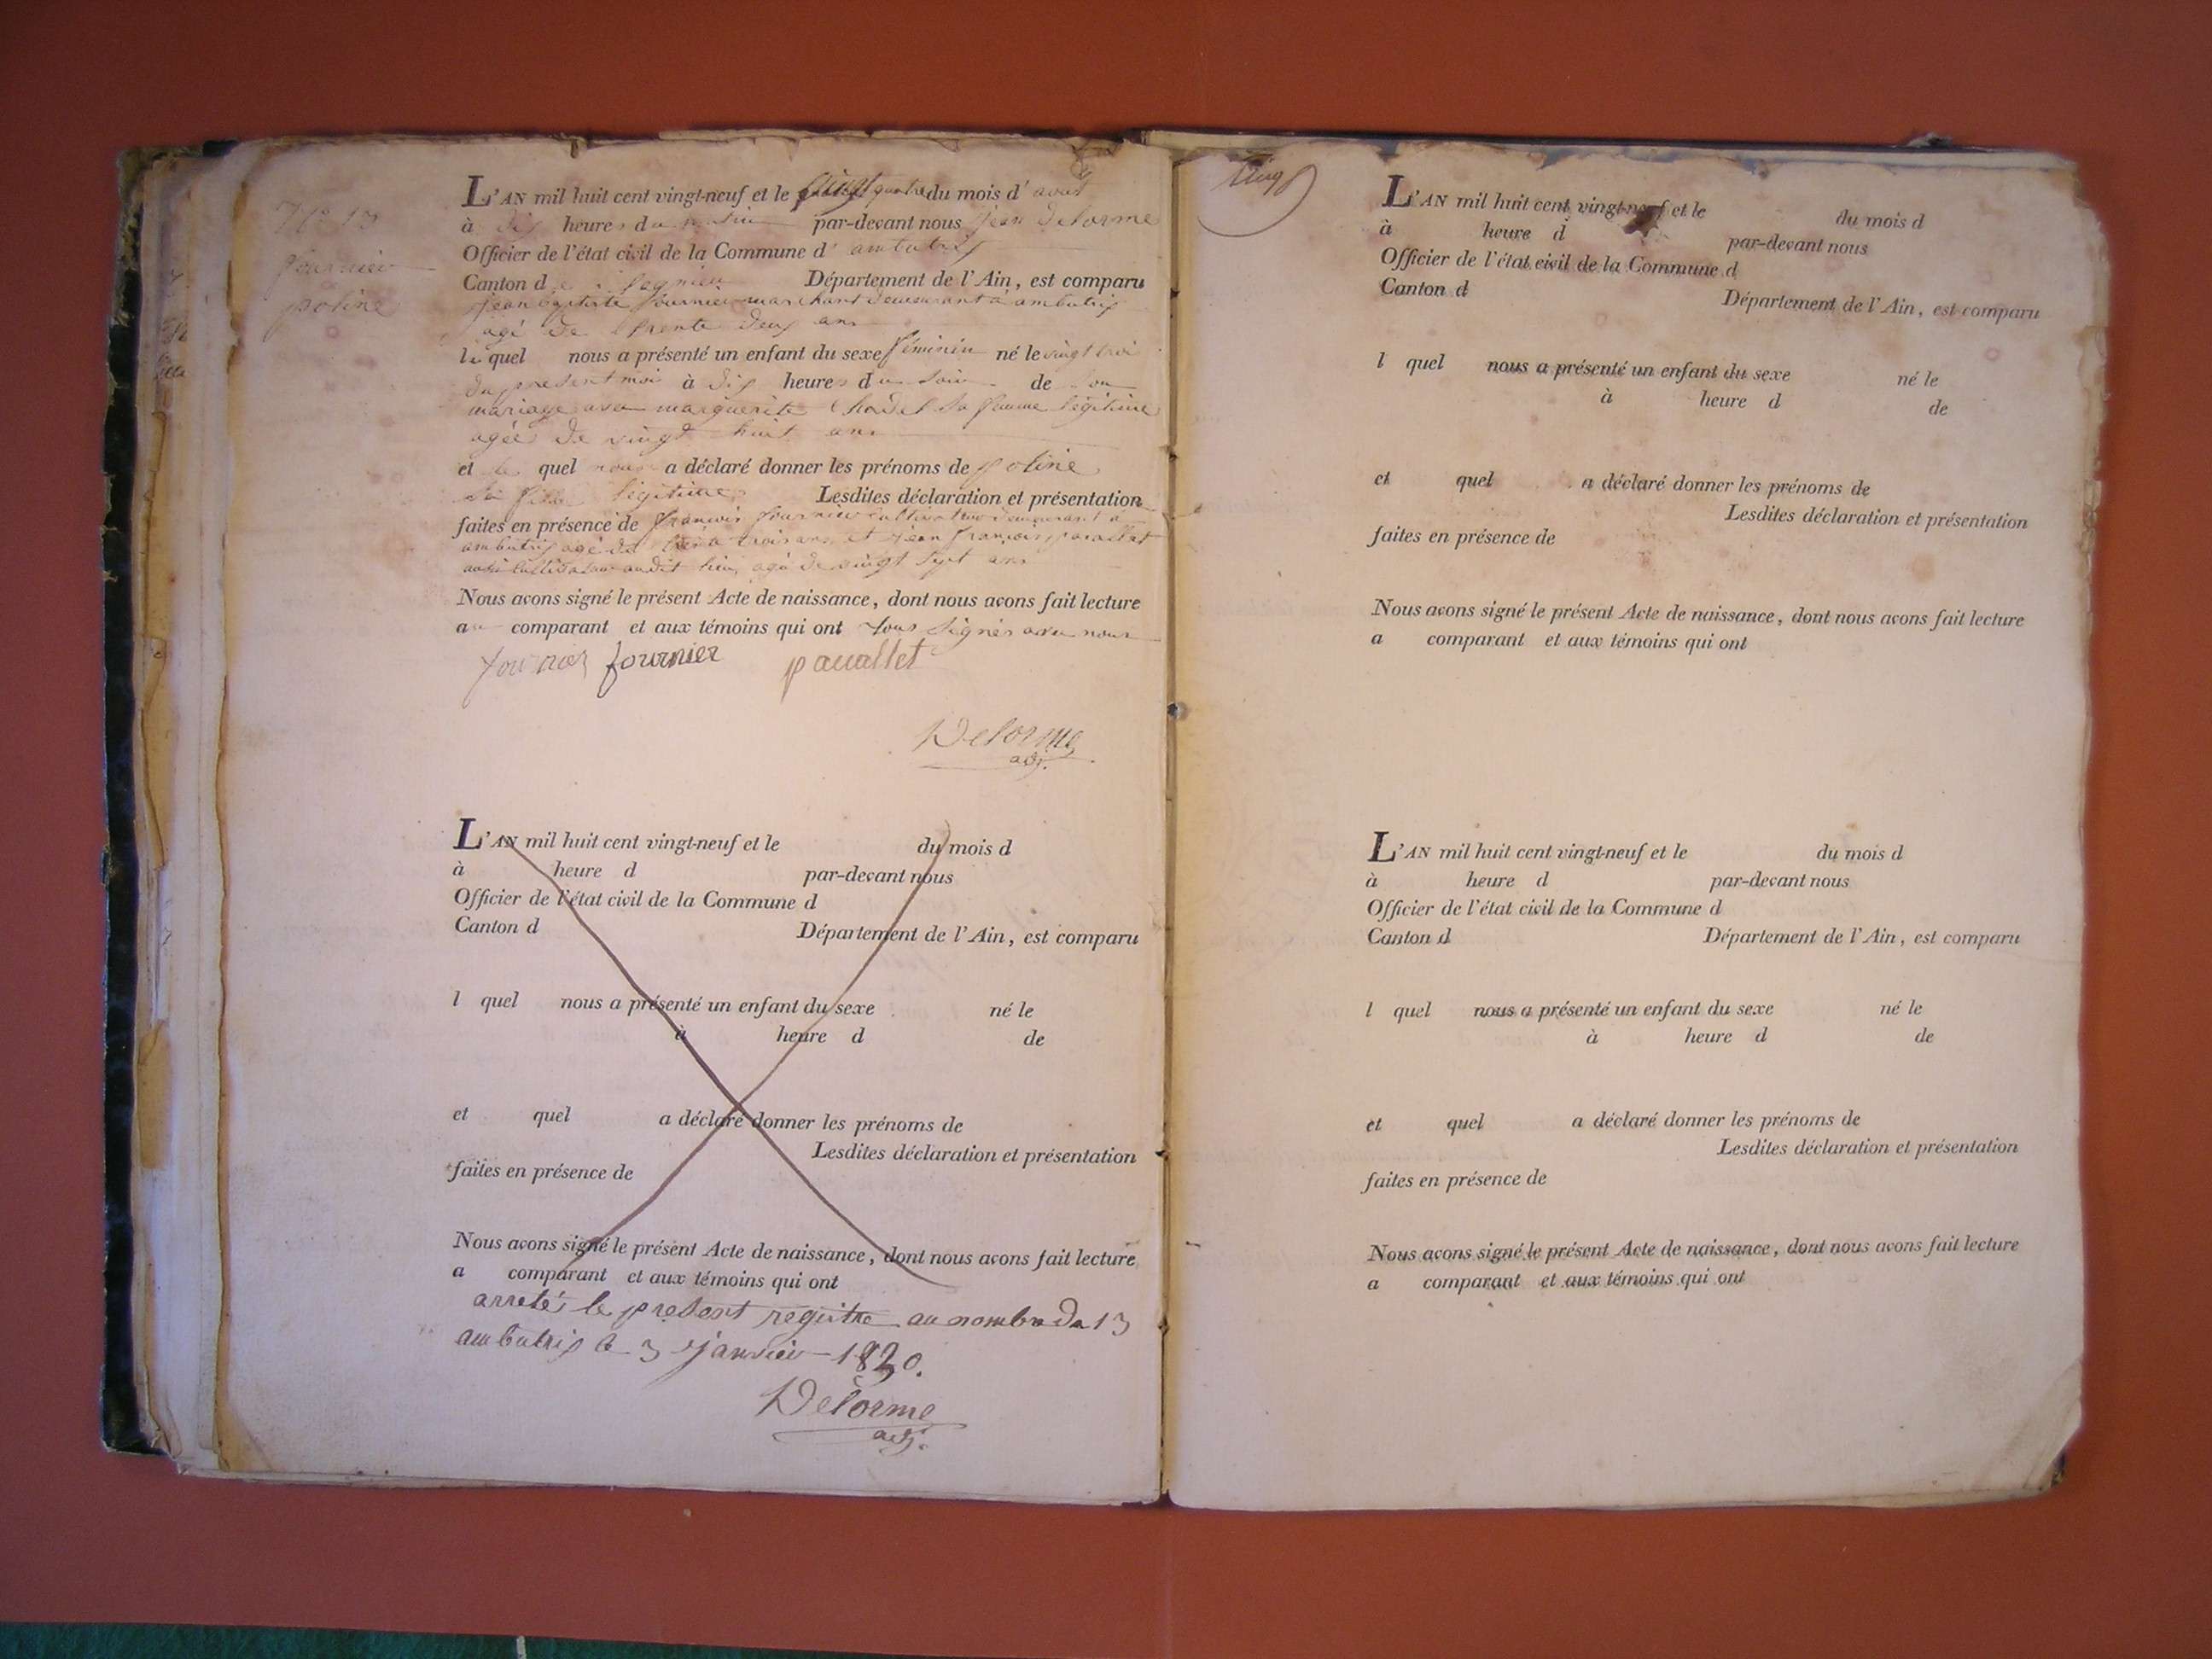 N° 13
fournier
poline
L'AN mil huit cent vingt-neuf et le vingt quatre du mois d'aout
à dix heures du matin par-devant nous jean Delorme
Officier de l'état civil de la Commune d'ambutrix
Canton de Lagnieu Département de l'Ain, est comparu
jean baptiste fournier marchant demeurant a ambutrix
agé de trente deux ans
le quel nous a présenté un enfant du sexe féminin né le vingt troi
du present mois à dix heures du soir de son
mariage avec marguerite Chadel sa femme légitime
agée de vingt huit ans
et le quel nous a déclaré donner les prénoms de poline
sa fille légitime Lesdites déclaration et présentation
faites en présence de françois fournier cultivateur demeurant a
ambutrix agé de trente trois ans et jean françois pauallet
aussi cultivateur audit lieu agé de vingt sept ans
Nous avons signé le présent Acte de naissance, dont nous avons fait lecture
au comparant et aux témoins qui ont tous signés avec nous
fournier fournier pauallet
Delorme
adj.
L'AN mil huit cent vingt-neuf et le du mois d
à heure d par-devant nous
Officier de l'état civil de la Commune d
Canton d Département de l'Ain, est comparu
l quel nous a présenté un enfant du sexe né le
à heure d de
et quel a déclaré donner les prénoms de
Lesdites déclaration et présentation
faites en présence de
Nous avons signé le présent Acte de naissance, dont nous avons fait lecture
a comparant et aux témoins qui ont
arretés le present registre au nombre de 13
ambutrix le 3 janvier 1830.
Delorme
adj.
cinq
L'AN mil huit cent vingt-neuf et le du mois d
à heure d par-devant nous
Officier de l'état civil de la Commune d
Canton d Département de l'Ain, est comparu
l quel nous a présenté un enfant du sexe né le
à heure d de
et quel a déclaré donner les prénoms de
Lesdites déclaration et présentation
faites en présence de
Nous avons signé le présent Acte de naissance, dont nous avons fait lecture
a comparant et aux témoins qui ont
L'AN mil huit cent vingt-neuf et le du mois d
à heure d par-devant nous
Officier de l'état civil de la Commune d
Canton d Département de l'Ain, est comparu
l quel nous a présenté un enfant du sexe né le
à heure d de
et quel a déclaré donner les prénoms de
Lesdites déclaration et présentation
faites en présence de
Nous avons signé le présent Acte de naissance, dont nous avons fait lecture
a comparant et aux témoins qui ont